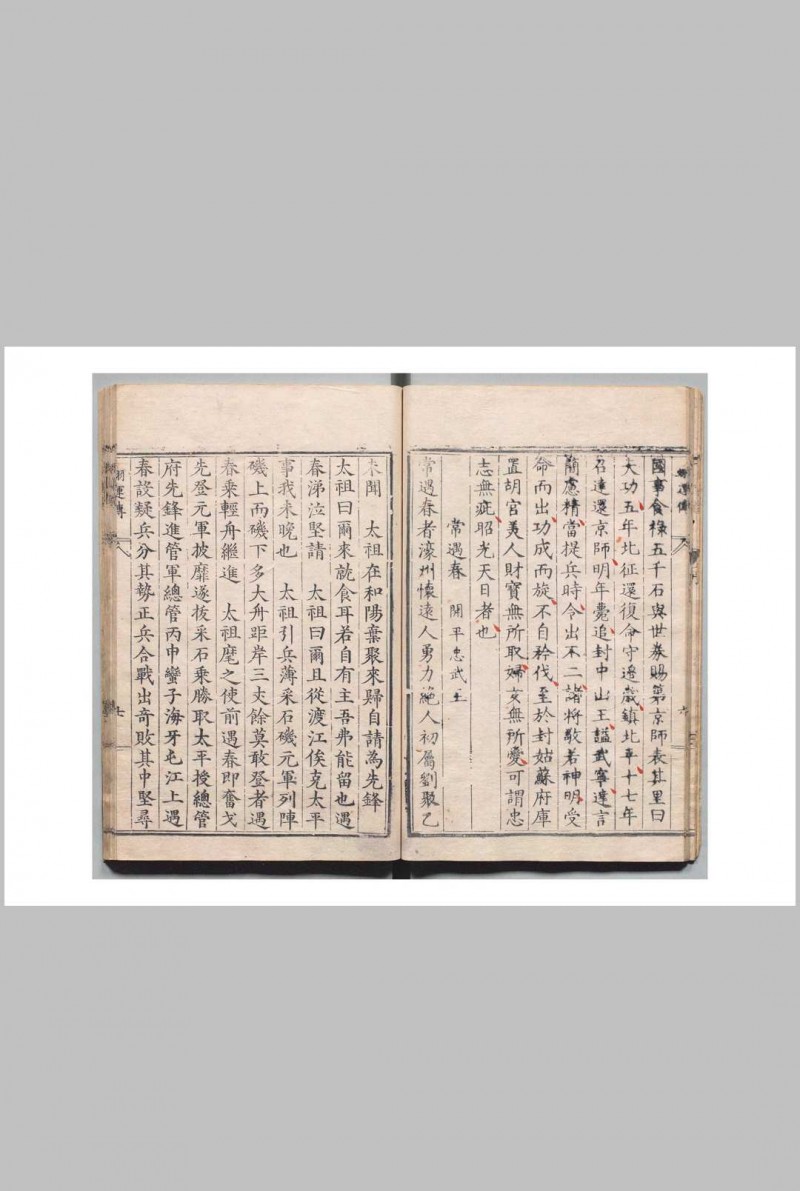 國事食祿五千石與世券賜第京師表其里曰
大功五年北征還復命守邊歲鎮北平十七年
召達還京師明年薨追封中山王諡武寧達言
簡慮精當提兵時令出不二諸將敬若神明受
命而出功成而旋不自矜伐至於封姑蘇府庫
置胡宮美人財寶無所取婦女無所愛可謂忠
志無疵昭光天日者也
常遇春 開平忠武王
常遇春者濠州懷遠人勇力絕人初屬劉聚乙
未聞 太祖在和陽棄聚來歸自請為先鋒
太祖曰爾來就食耳若自有主吾弗能留也遇
春涕泣堅請 太祖曰爾且從渡江俟克太平
事我未晚也 太祖引兵薄采石磯元軍列陣
磯上而磯下多大舟距岸三丈餘莫敢登者遇
春乘輕舟繼進 太祖麾之使前遇春即奮戈
先登元軍披靡遂拔采石乘勝取太平授總管
府先鋒進管軍總管丙申蠻子海牙屯江上遇
春設疑兵分其勢正兵合戰出奇敗其中堅尋
開運傳
七